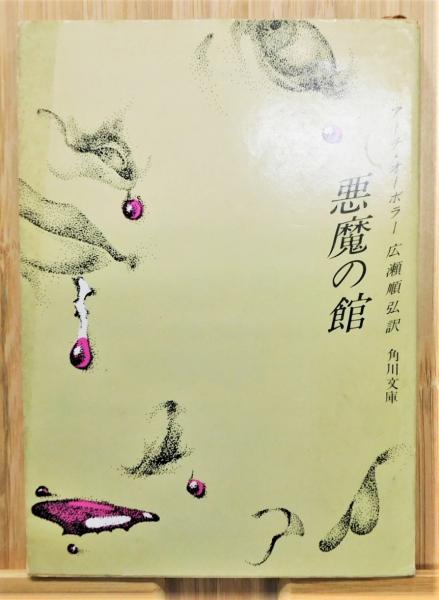 アーチ・オーボラー 広瀬順弘訳
悪魔の館
角川文庫